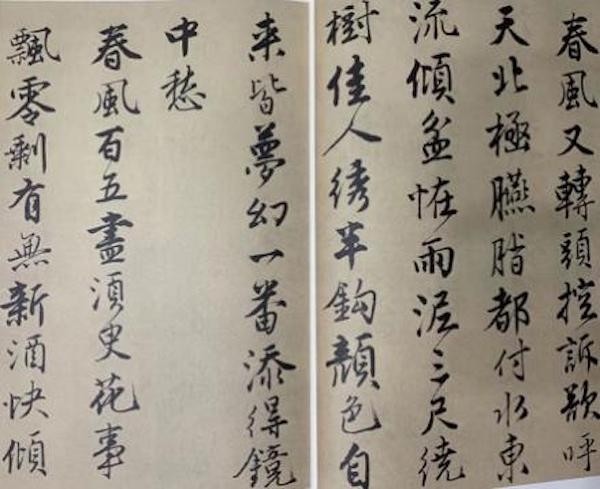 春風又轉頭控訴欲呼
天北極臙脂都付水東
流傾盆恠雨泥三尺繞
樹佳人綉半鈎顏色自
来皆夢幻一番添得鏡
中愁
春風百五盡須臾花事
飄零剩有無新酒快傾